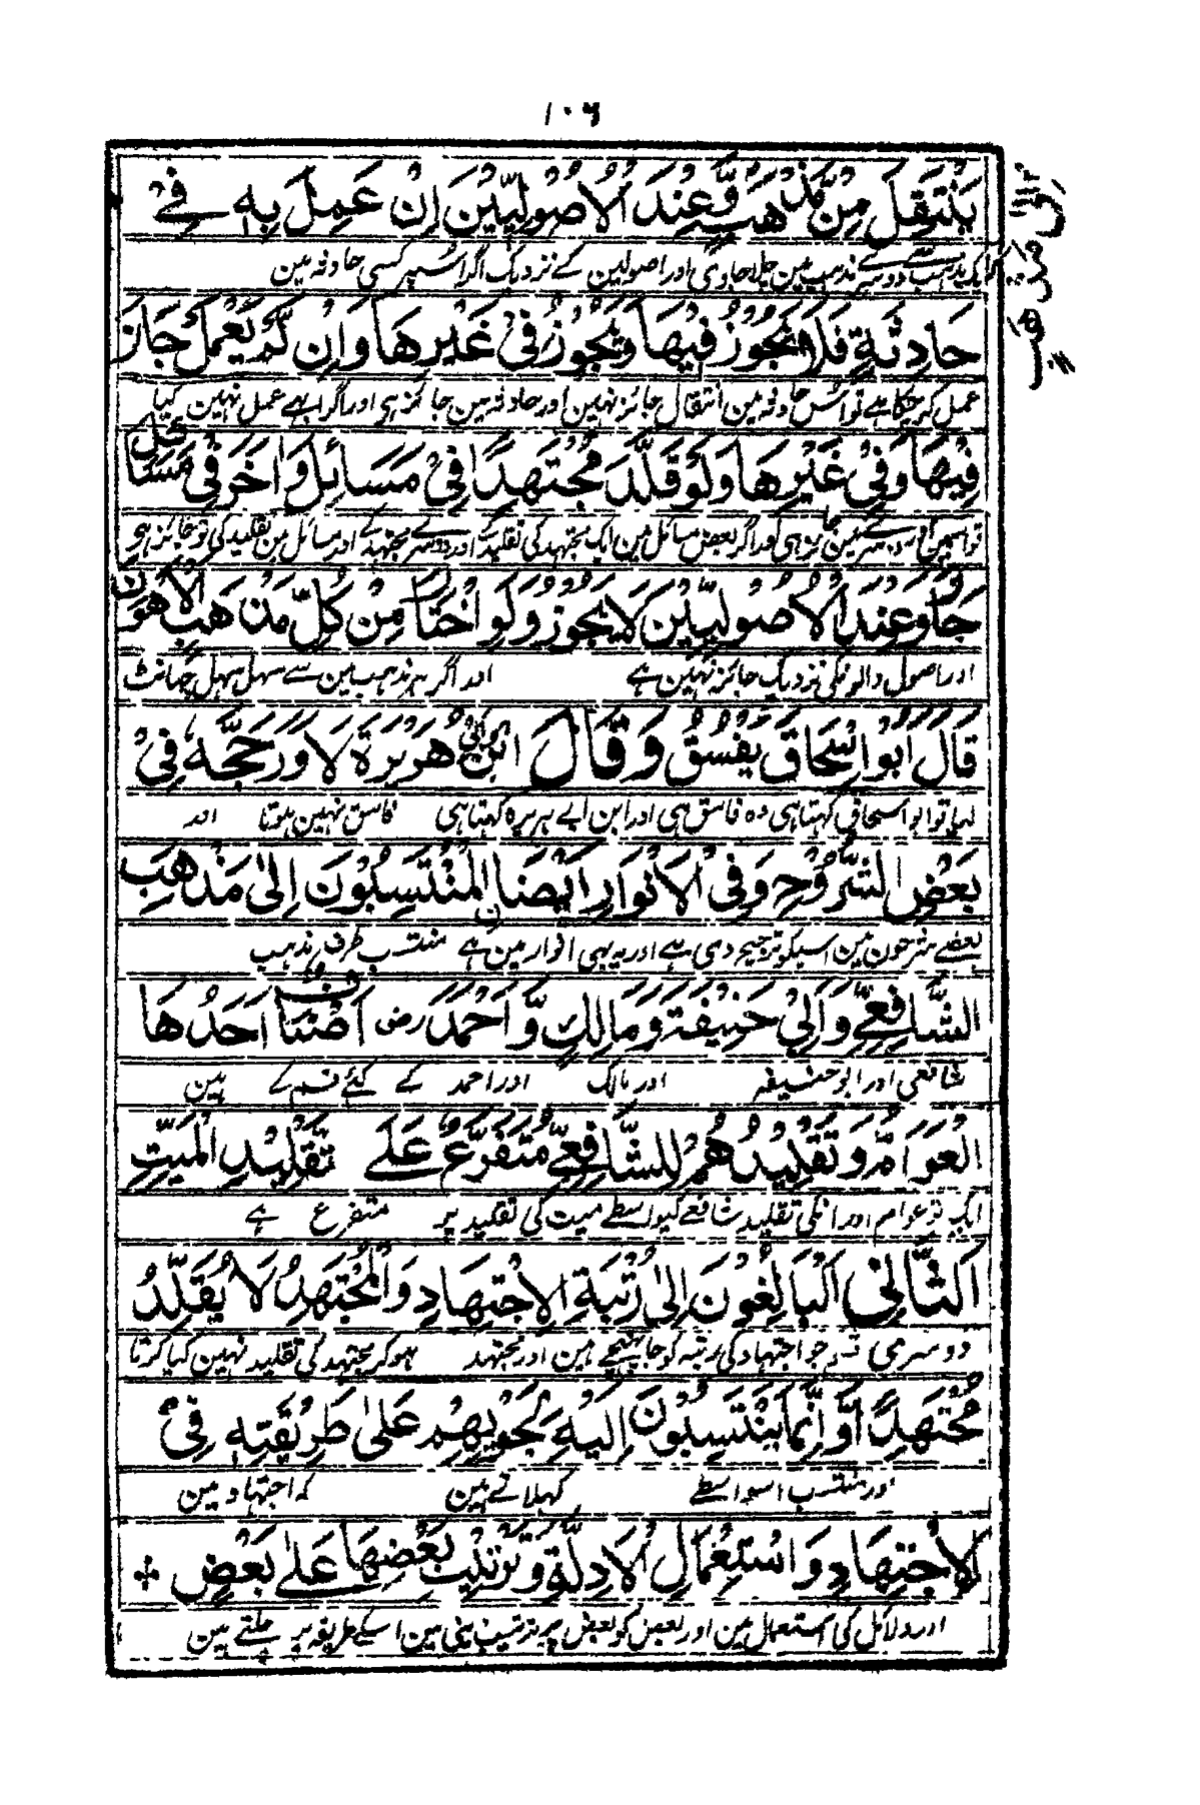 ١٠٦
يَنْتَقِلَ مِنْ مَّذْهَبِهٖ وَّعِنْدَ الْاُصُوْلِيِّيْنَ اِنْ عَمِلَ بِهٖ فِيْ
مذہب مین چلا جاوی اور اصولین کے نزدیک اگر اسپر کسی حادثہ مین
حَادِثَةٍ فَلَا يَجُوْزُ فِيْهَا وَيَجُوْزُ فِيْ غَيْرِهَا وَاِنْ لَّمْ يَعْمَلْ جَازَ
عمل کر چکا ہے تو اس حادثہ مین انتقال جائز نہین اور حادثہ مین جائز ہی اور اگر عمل نہین کیا
فِيْهَا وَفِيْ غَيْرِهَا وَلَوْ قَلَّدَ مُجْتَهِدًا فِيْ مَسَائِلَ وَاٰخَرَ فِيْ مَسَائِلَ
اور اگر بعض مسائل مین ایک مجتہد کی تقلید کی اور دوسرے مجتہد کے اور مسائل مین تقلید کی تو جائز ہی
جَازَ وَعِنْدَ الْاُصُوْلِيِّيْنَ لَا يَجُوْزُ وَلَوِ اخْتَارَ مِنْ كُلِّ مَذْهَبٍ الْاَهْوَنَ
اور اصول والونکی نزدیک جائز نہین ہے اور اگر ہر مذہب مین سے سہل سہل چھانٹ
قَالَ اَبُوْ اِسْحَاقَ يَفْسُقُ وَقَالَ ابْنُ اَبِيْ هُرَيْرَةَ لَا وَرَجَّحَهٗ فِيْ
لیا تو ابو اسحاق کہتا ہی وہ فاسق ہی اور ابن ابے ہریرہ کہتا ہی فاسق نہین ہوتا اور
بَعْضِ الشُّرُوْحِ وَفِي الْاَنْوَارِ اَيْضًا الْمُنْتَسِبُوْنَ اِلٰى مَذْهَبِ
بعضے شرحون مین اسیکو ترجیح دی ہے اور یہ بہی انوار مین ہے منتسب طرف مذہب
الشَّافِعِيِّ وَاَبِيْ حَنِيْفَةَ وَمَالِكٍ وَّاَحْمَدَ رض اَصْنَافٌ اَحَدُهَا
شافعی اور ابو حنیفہ اور مالک اور احمد کے کئے قسم کے ہین
الْعَوَامُّ وَتَقْلِيْدُهُمْ لِلشَّافِعِيِّ مُتَفَرِّعٌ عَلٰى تَقْلِيْدِ الْمَيِّتِ
ایک تو عوام اور انکی تقلید شافعے کیواسطے میت کی تقلید پر متفرع ہے
اَلثَّانِيْ اَلْبَالِغُوْنَ اِلٰى رُتْبَةِ الْاِجْتِهَادِ وَالْمُجْتَهِدُ لَا يُقَلِّدُ
دوسری جو اجتہاد کی رتبہ کو جا پہنچے ہین اور مجتہد ہو کر مجتہد کی تقلید نہین کیا کرتا
مُجْتَهِدًا وَّاِنَّمَا يَنْتَسِبُوْنَ اِلَيْهِ لِجَرْيِهِمْ عَلٰى طَرِيْقَتِهٖ فِيْ
اور منتسب اسواسطے کہلاتے ہین کہ اجتہاد مین
الْاِجْتِهَادِ وَاسْتِعْمَالِ الْاَدِلَّةِ وَتَرْتِيْبِ بَعْضِهَا عَلٰى بَعْضٍ
اور دلائل کی استعمال مین اور بعض کو بعض پر ترتیب دینی مین اسکے طریقہ پر چلتے ہین